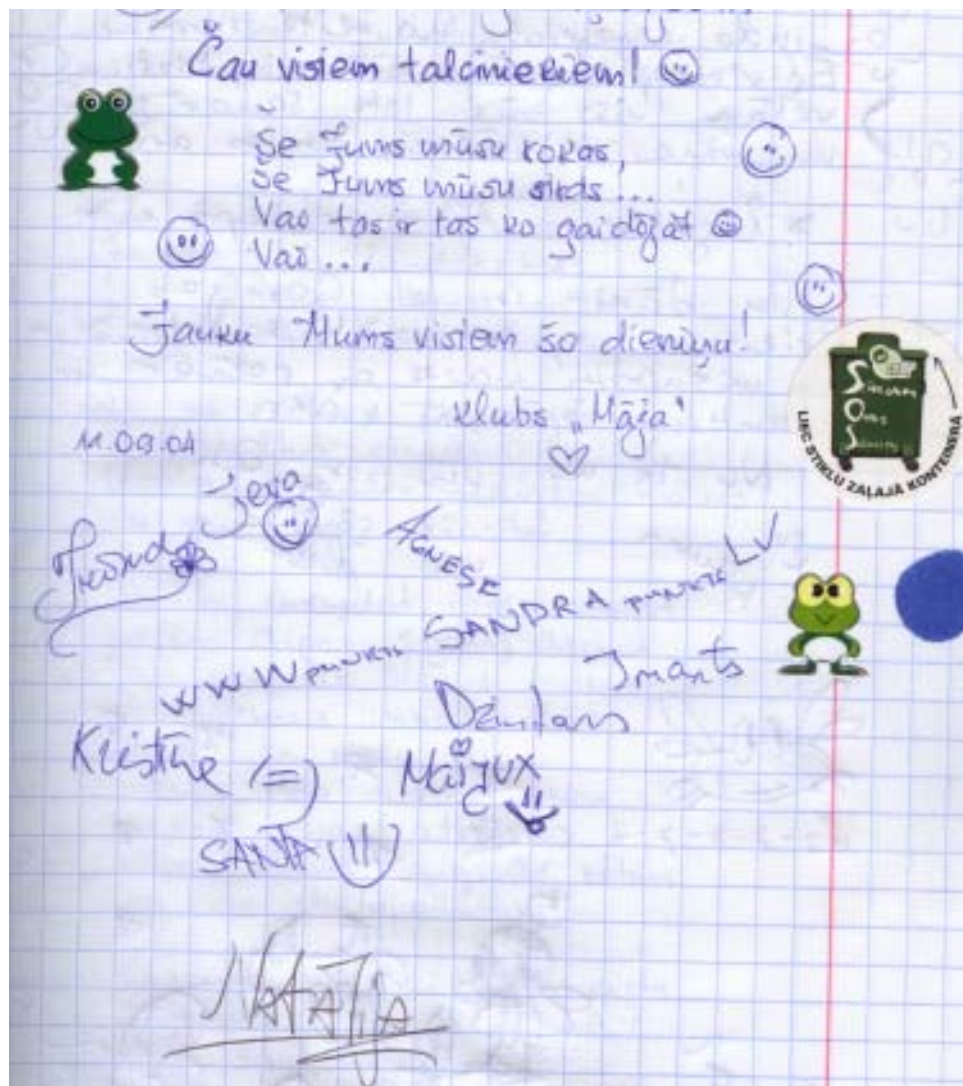 Čau visiem talciniekiem!
Še Jums mūsu rokas,
Še Jums mūsu sirds...
Vai tas ir tas ko gaidījāt
Vai...
Jauku Mums visiem šo dieniņu!
klubs „Māja"
11.09.04
Ieva
AGNESE
WWW punkts SANDRA punkts LV
Imants
Dzintars
Kristīne (=)
Maijux
SANTA
NATAļjA
LIEC STIKLU ZAĻAJĀ KONTEINERĀ